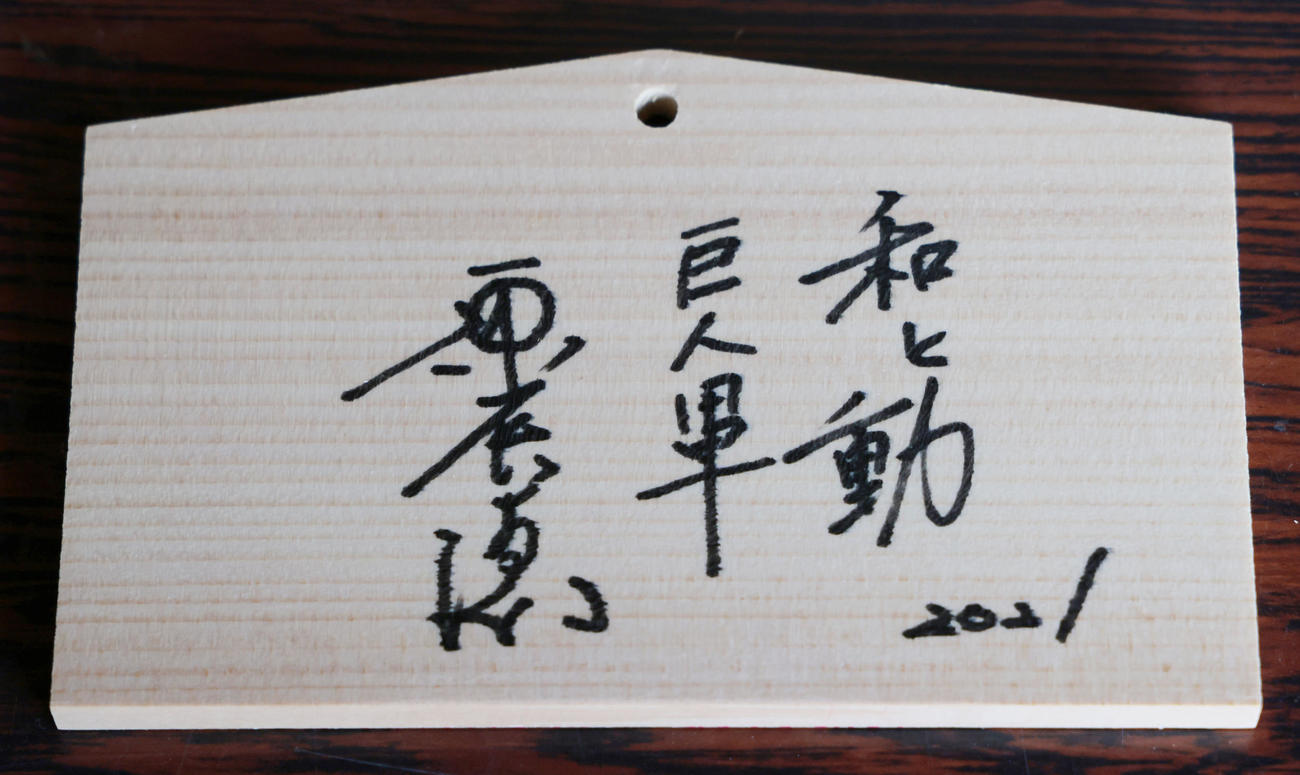 和と動
2021
巨人軍
原辰徳